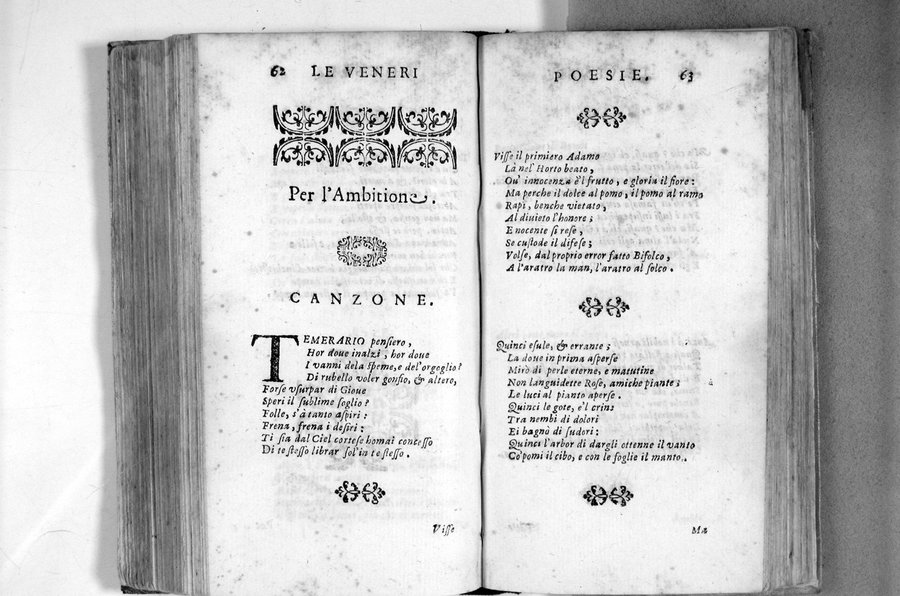 62 LE VENERI
Per l'Ambitione.
CANZONE.
TEMERARIO pensiero,
Hor doue inalzi, hor doue
I vanni dela speme, e del'orgoglio?
Di rubello voler gonfio, & altero,
Forse vsurpar di Gioue
Speri il sublime soglio?
Folle, s'à tanto aspiri:
Frena, frena i desiri:
Ti sia dal Ciel cortese homai concesso
Di te stesso librar sol'in te stesso.
Visse
POESIE. 63
Visse il primiero Adamo
Là nel' Horto beato,
Ou' innocenza è'l frutto, e gloria il fiore:
Ma perche il dolce al pomo, il pomo al ramo
Rapì, benche vietato,
Al diuieto l'honore;
E nocente si rese,
Se custode il difese;
Volse, dal proprio error fatto Bifolco,
A l'aratro la man, l'aratro al solco.
Quinci esule, & errante;
La doue in prima asperse
Mirò di perle eterne, e matutine
Non languidette Rose, amiche piante;
Le luci al pianto aperse.
Quinci le gote, e'l crine
Tra nembi di dolori
Ei bagnò di sudori:
Quinci l'arbor di dargli ottenne il vanto
Co' pomi il cibo, e con le foglie il manto.
Ma